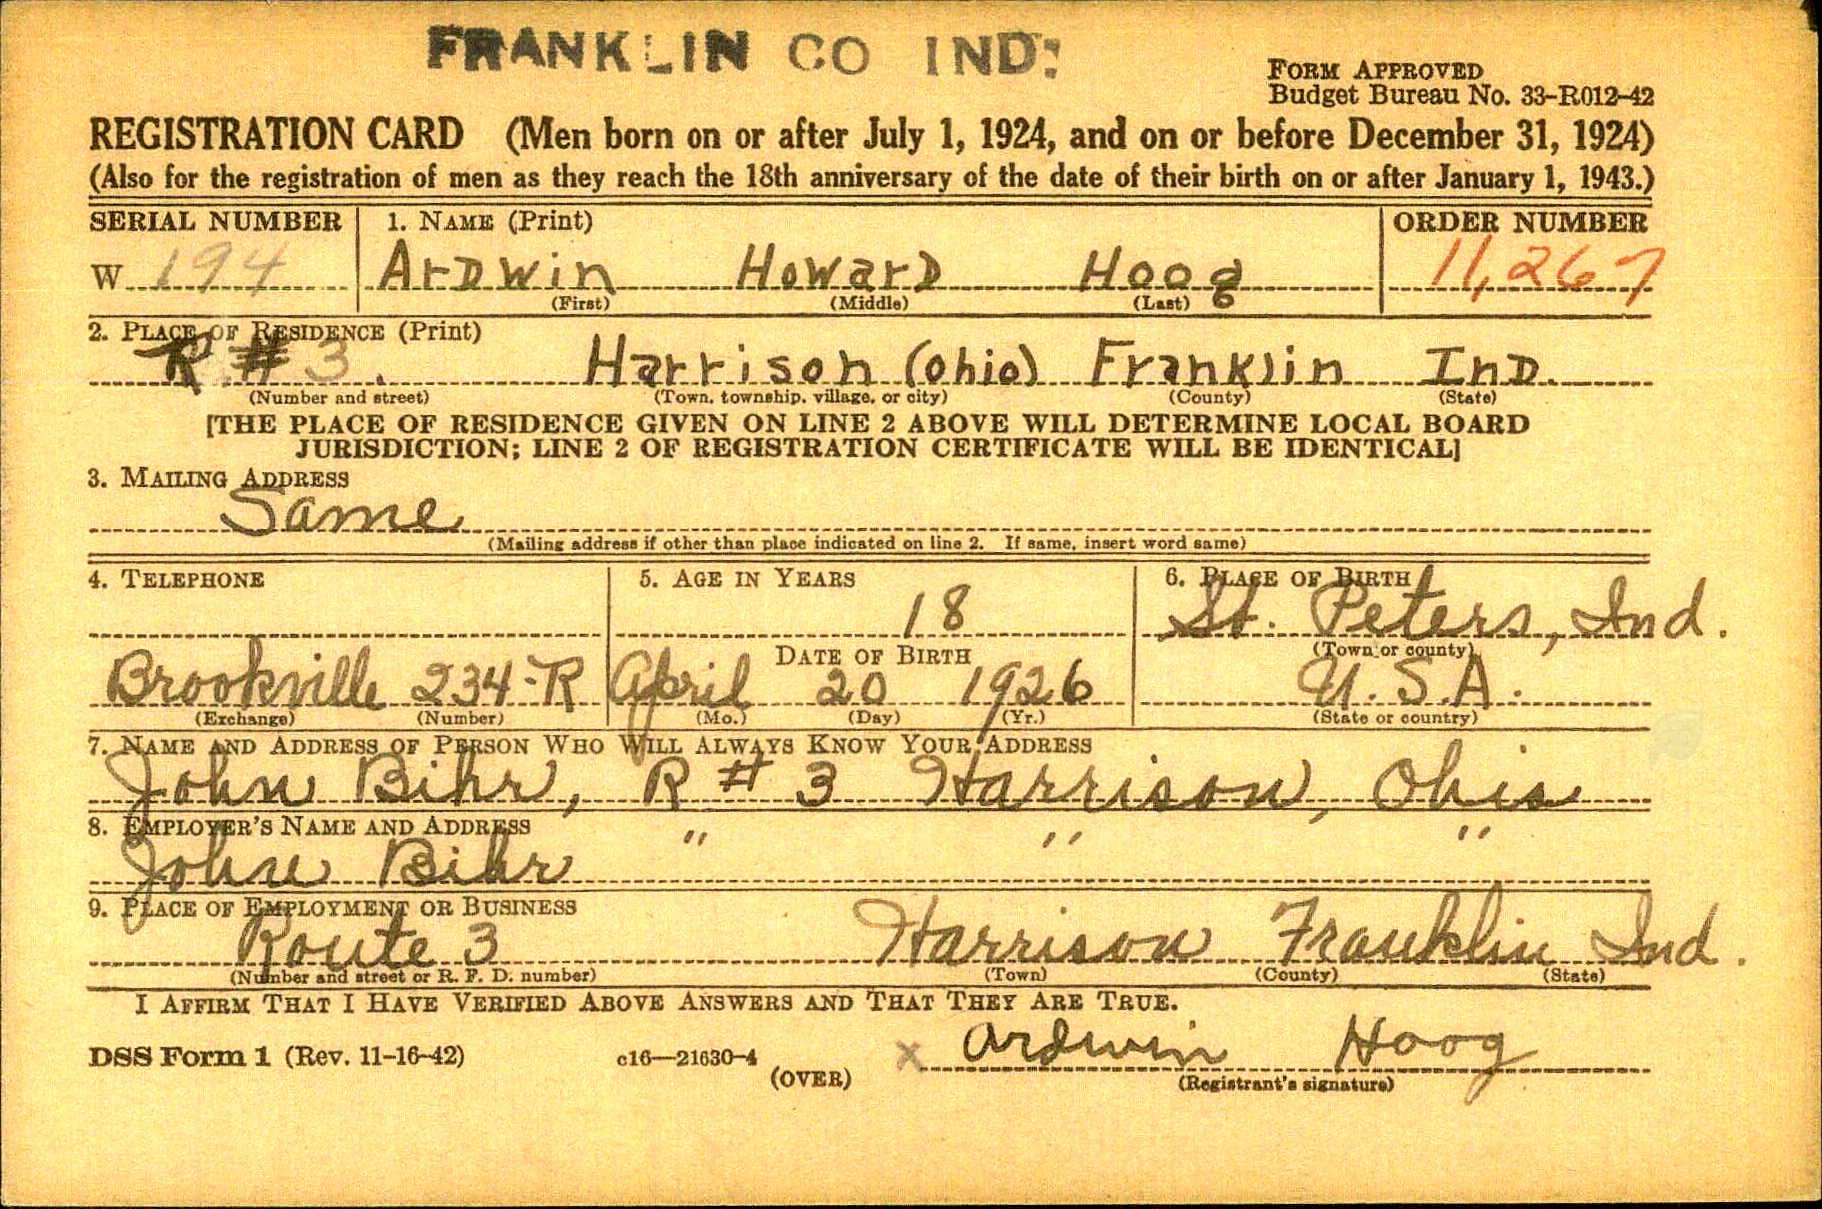 FRANKLIN CO IND:
FORM APPROVED
Budget Bureau No. 33-R012-42
REGISTRATION CARD (Men born on or after July 1, 1924, and on or before December 31, 1924)
(Also for the registration of men as they reach the 18th anniversary of the date of their birth on or after January 1, 1943.)
SERIAL NUMBER 1. NAME (Print) ORDER NUMBER
W 194 Ardwin Howard Hoog 11,267
(First) (Middle) (Last)
2. PLACE OF RESIDENCE (Print)
R. # 3. Harrison (Ohio) Franklin Ind.
(Number and street) (Town, township, village, or city) (County) (State)
[THE PLACE OF RESIDENCE GIVEN ON LINE 2 ABOVE WILL DETERMINE LOCAL BOARD
JURISDICTION; LINE 2 OF REGISTRATION CERTIFICATE WILL BE IDENTICAL]
3. MAILING ADDRESS
Same
(Mailing address if other than place indicated on line 2. If same, insert word same)
4. TELEPHONE 5. AGE IN YEARS 6. PLACE OF BIRTH
18 St. Peters, Ind.
DATE OF BIRTH (Town or county)
Brookville 234-R April 20 1926 U.S.A.
(Exchange) (Number) (Mo.) (Day) (Yr.) (State or country)
7. NAME AND ADDRESS OF PERSON WHO WILL ALWAYS KNOW YOUR ADDRESS
John Bihr, R # 3 Harrison, Ohio
8. EMPLOYER'S NAME AND ADDRESS
John Bihr " " "
9. PLACE OF EMPLOYMENT OR BUSINESS
Route 3 Harrison Franklin Ind.
(Number and street or R. F. D. number) (Town) (County) (State)
I AFFIRM THAT I HAVE VERIFIED ABOVE ANSWERS AND THAT THEY ARE TRUE.
DSS Form 1 (Rev. 11-16-42) c16—21630-4 x Ardwin Hoog
(OVER) (Registrant's signature)